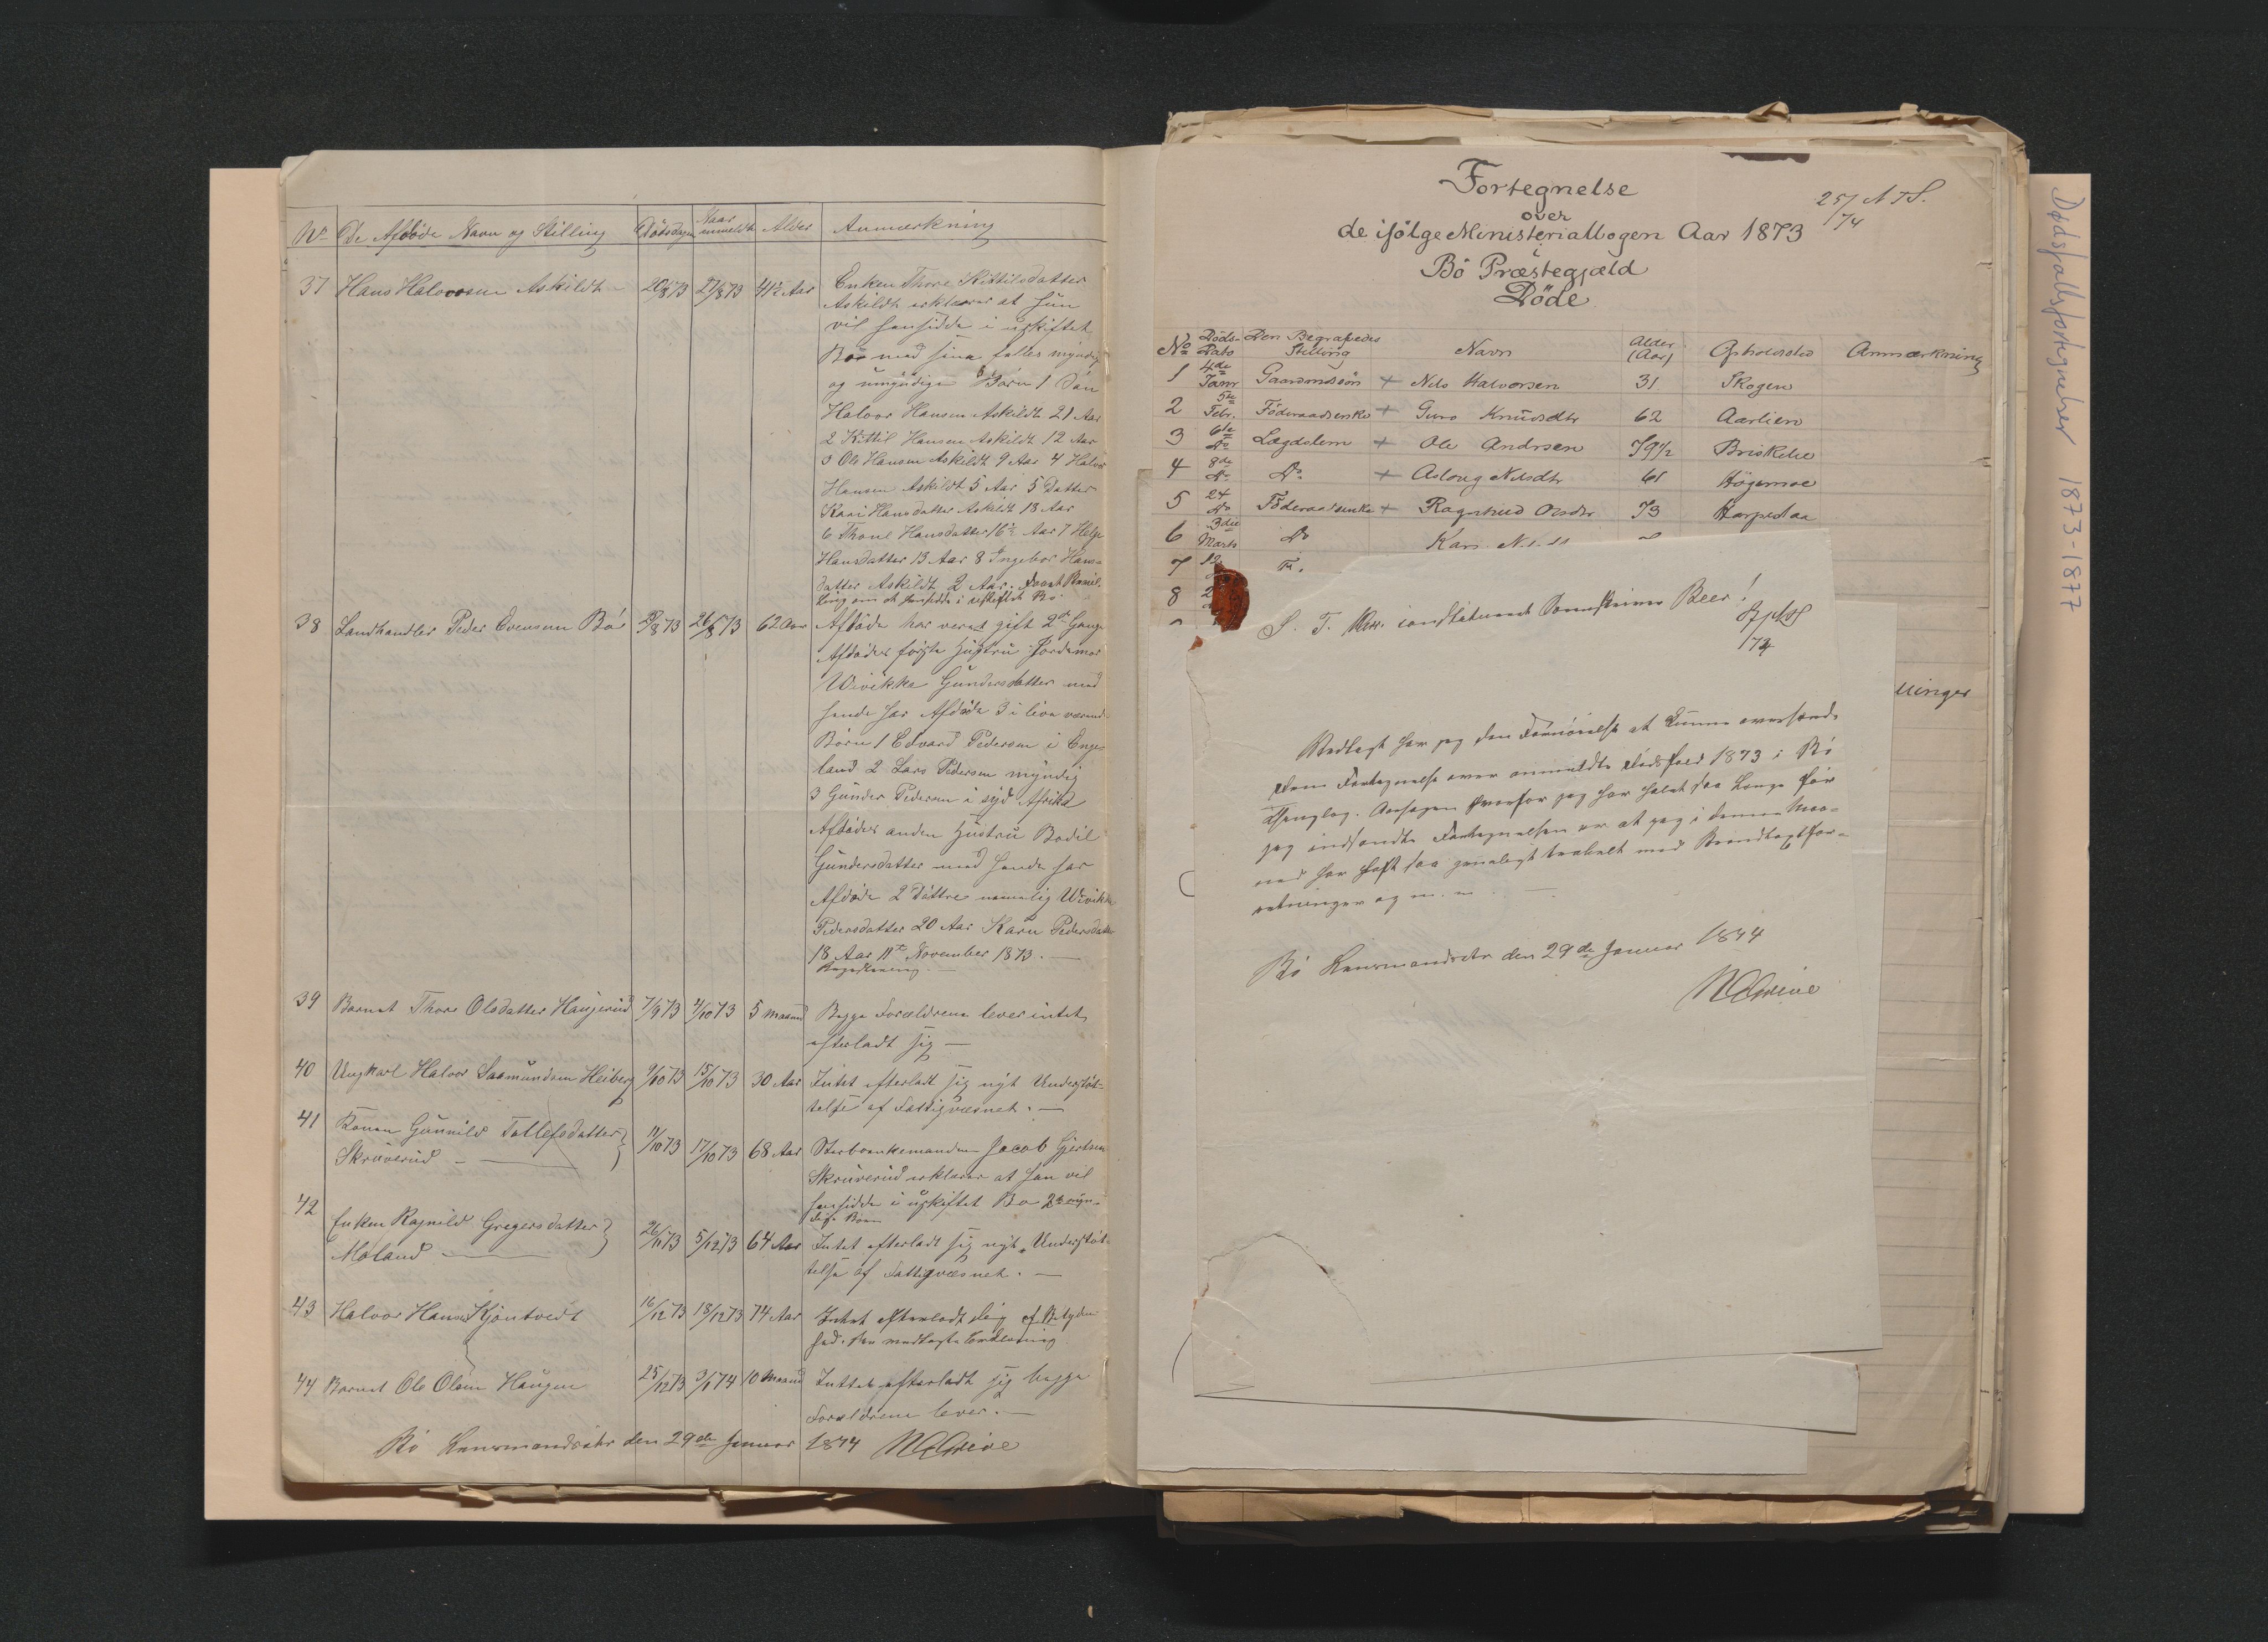 No De Afdöde Navn og Stilling Dödsdagen Naar anmeldt Alder Anmærkning
37 Hans Halvorsen Askildt 20/8 73 27/8 73 41½ Aar Enken Thone Kittilsdatter
Askildt erklærer at hun
vil hensidde i uskiftet
Bo med sine fælles myndige
og umyndige Börn 1 Sön
Halvor Hansen Askildt 21 Aar
2 Kittil Hansen Askildt 12 Aar
3 Ole Hansen Askildt 9 Aar 4 Halvor
Hansen Askildt 5 Aar 5 Datter
Kari Hansdatter Askildt 18 Aar
6 Thone Hansdatter 16½ Aar 7 Helge
Hansdatter 13 Aar 8 Ingebor Hans-
datter Askildt 2 Aar.
ling om at hensidde i uskiftet Bo.
38 Landhandler Peder Evensen Bö 26/8 73 62 Aar Afdöde har været gift 2de Gange
Afdödes förste Hustru Jordemor
Wivikke Gundersdatter med
hende har Afdöde 3 i live værende
Börn 1 Edvard Pedersen i Enge
land 2 Lars Pedersen myndig
3 Gunder Pedersen i syd Afrika
Afdödes anden Hustru Bodil
Gundersdatter med hende har
Afdöde 2 Döttre nemelig Wivikke
Pedersdatter 20 Aar Karen Pedersdatter
18 Aar 11te November 1873.
39 Barnet Thore Olsdatter Haugerud 7/9 73 4/10 73 5 Maaned Begge Forældrene lever intet
efterladt sig
40 Ungkarl Halvor Saamundsen Heiberg 9/10 73 15/10 73 30 Aar Intet efterladt sig nyt Understöt-
telse af Fattigvæsnet.
41 Konen Gunnild Tollefsdatter 11/10 73 17/10 73 68 Aar Sterboenkemanden Jacob Gjertsen
Skruverud Skruverud erklærer at han vil
hensidde i uskiftet Bo myn-
dige Börn
42 Enken Ragnild Gregersdatter 26/11 73 5/12 73 64 Aar Intet efterladt sig nyt Understöt-
Moland telse af Fattigvæsnet.
43 Halvor Hansen Kjöntvedt 16/12 73 18/12 73 74 Aar Intet efterladt sig af Betyden
hed. Se vedlagte Erklæring
44 Barnet Ole Olsen Haugen 25/12 73 3/1 74 10 Maaned Inttet efterladt sig begge
Forældrene lever.
Bö Lensmandsdtr den 29de Januar 1874
Fortegnelse
over
de ifölge Ministerialbogen Aar 1873
i
Bö Præstegjæld
Döde
25/ N 7 S.
74
No Döds-Dato Den Begravedes Stilling Navn Alder (Aar) Opholdssted Anmærkning
1 4de Janr Gaardmdsön + Nels Halvorsen 31 Skogen
2 5te Febr. Föderaadsenke + Guro Knudsdtr 62 Aarlien
3 6te Do Lægdslem + Ole Andrsen 79½ Briskelie
4 8de Do Do + Aslaug Nilsdtr 61 Högemoe
5 24 Do Föderaadsenke + Ragnhild Olsdtr 73 Harpedaa
6 3die Marts Do Kari
7 12
8 2
S. T. Herr constitueret Sorenskriver Beer!
Vedlagt har jeg den Fornöielse at kunne oversende
Dem Fortegnelse over anmeldte Dödsfald 1873 i Bö
Thinglag. Aarsagen hvorfor jeg har holdt saa længe för
jeg indsendte Fortegnelsen er at jeg i denne Maa-
ned har havt saa grueligt travelt med Brandtaxtfor-
retninger og m. m.
Bö Lensmandsdtr den 29de Januar 1874
ninger
Dødsfallsfortegnelser 1873-1877